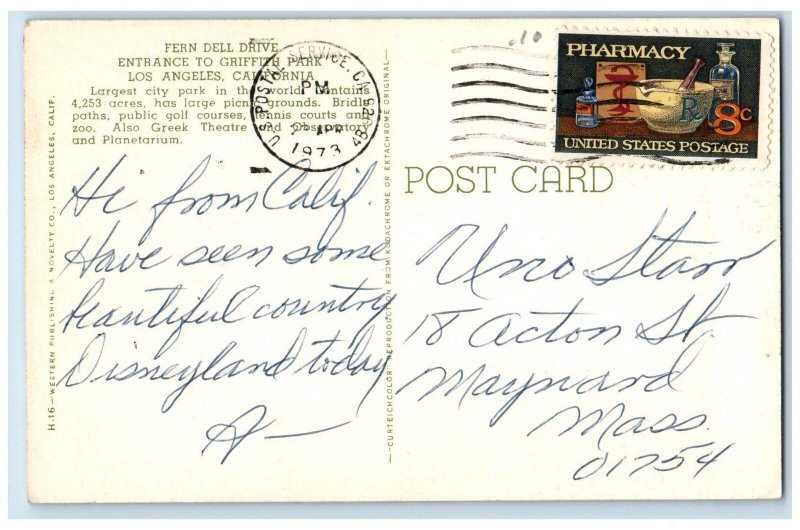 FERN DELL DRIVE
ENTRANCE TO GRIFFITH PARK
LOS ANGELES, CALIFORNIA
Largest city park in the world. Contains
4,253 acres, has large picnic grounds. Bridle
paths, public golf courses, tennis courts and
zoo. Also Greek Theatre and Observatory
and Planetarium.
U.S. POSTAL SERVICE, CA
PM
APR
1973
PHARMACY
Rx
8c
UNITED STATES POSTAGE
POST CARD
Hi from Calif.
Have seen some
beautiful country
Disneyland today
A—
Uno Starr
18 Acton St.
Maynard
Mass.
01754
H.16—WESTERN PUBLISHING & NOVELTY CO., LOS ANGELES, CALIF.
—CURTEICHCOLOR REPRODUCTION FROM KODACHROME OR EKTACHROME ORIGINAL—